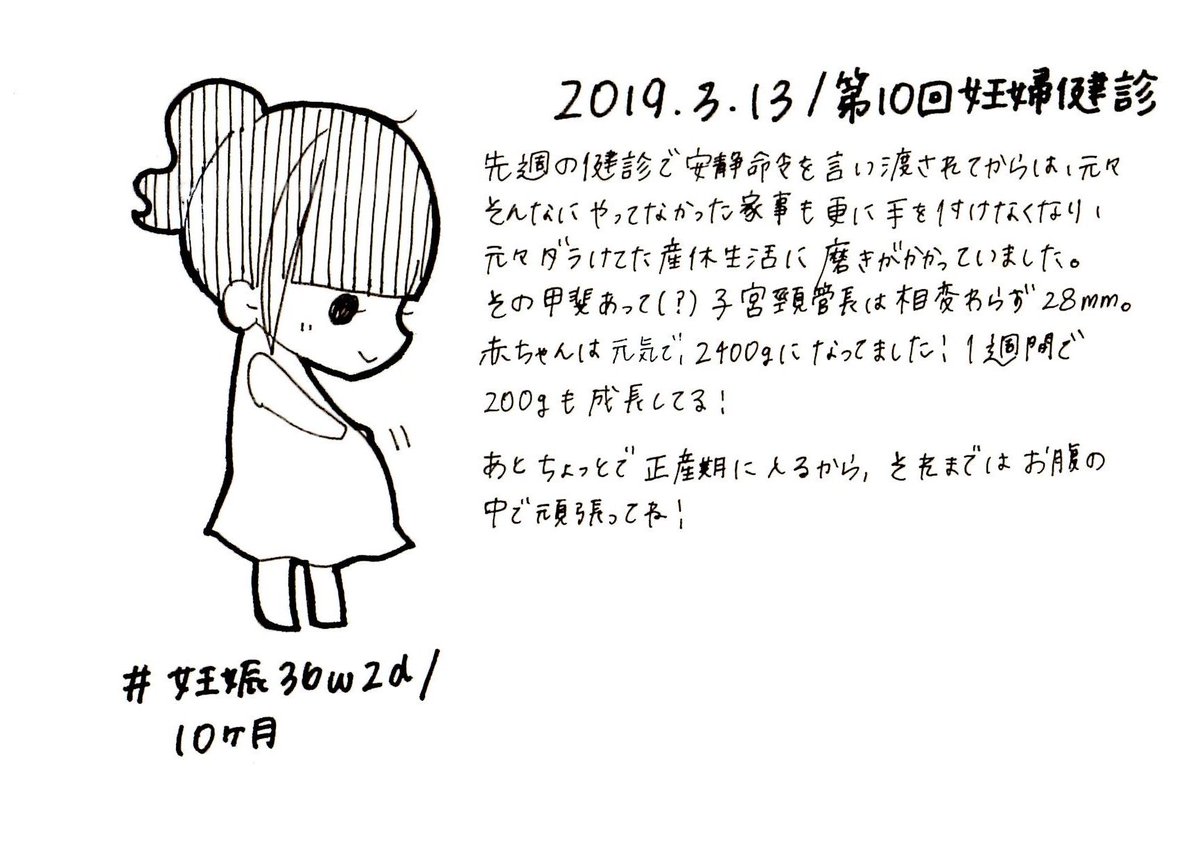 2019.3.13/第10回妊婦健診
先週の健診で安静命令を言い渡されてからは、元々
そんなにやってなかった家事も更に手を付けなくなり、
元々ダラけてた産休生活に磨きがかかっていました。
その甲斐あって(?)子宮頸管長は相変わらず28mm。
赤ちゃんは元気で、2400gになってました!1週間で
200gも成長してる!
あとちょっとで正産期に入るから、それまではお腹の
中で頑張ってね!
#妊娠36w2d/
10ヶ月